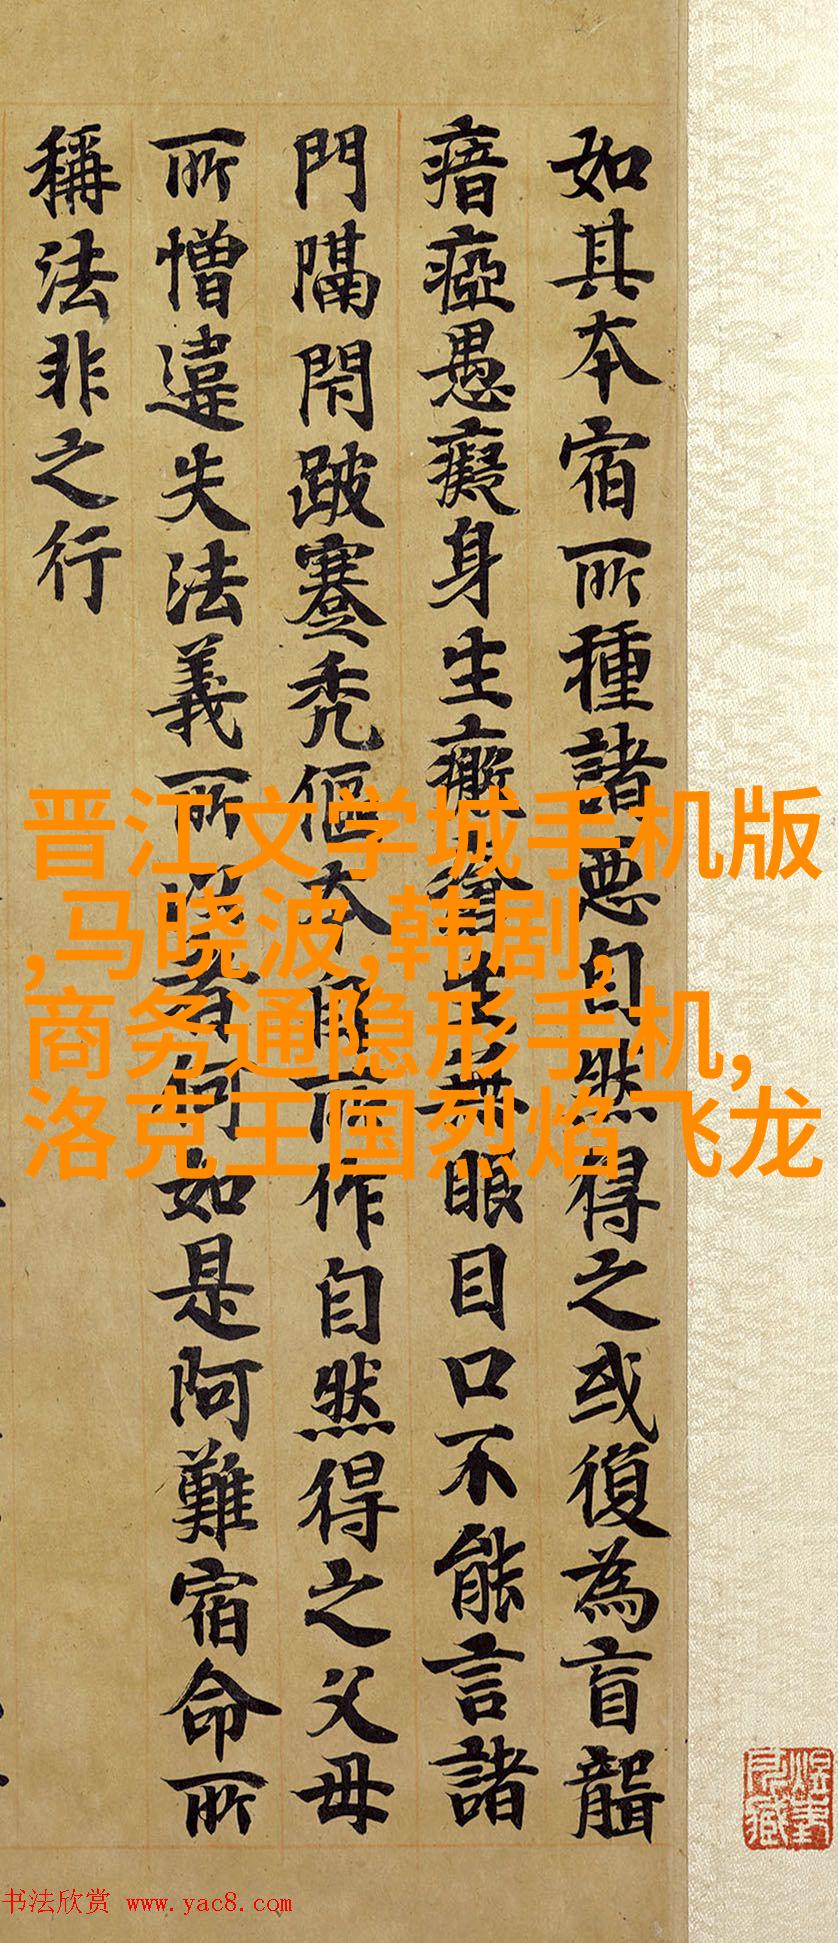 如其本宿所種諸惡自然得之或復為盲聾
瘖瘂愚癡身生癩瘡生無眼目口不能言諸
門隔閇跛蹇禿傴本自所作自然得之父母
所憎違失法義所以者何如是阿難宿命所
稱法非之行
晋江文学城手机版
,马晓波,韩剧,
商务通隐形手机,
洛克王国烈焰飞龙
书法欣赏 www.yac8.com